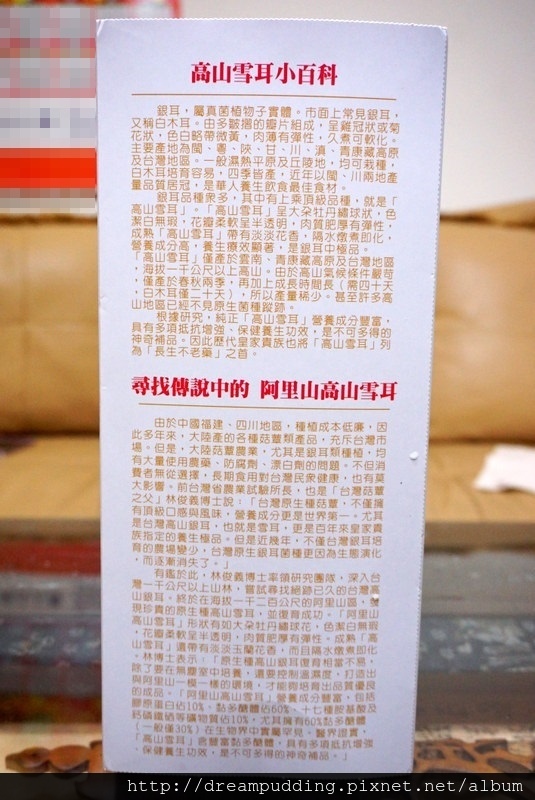 高山雪耳小百科
銀耳，屬真菌植物子實體。市面上常見銀耳，
又稱白木耳。由多皺摺的瓣片組成，呈雞冠狀或菊
花狀，色白略帶微黃，肉薄有彈性，久煮可軟化。
主要產地為閩、粵、陝、甘、川、滇、青康藏高原
及台灣地區。一般濕熱平原及丘陵地，均可栽種，
白木耳培育容易，四季皆產，近年以閩、川兩地產
量品質居冠，是華人養生飲食最佳食材。
銀耳品種衆多，其中有上乘頂級品種，就是「
高山雪耳」。「高山雪耳」呈大朵牡丹繡球狀，色
潔白無瑕，花瓣柔軟呈半透明，肉質肥厚有彈性，
成熟「高山雪耳」帶有淡淡花香，隔水燉煮即化，
營養成分高，養生療效顯著，是銀耳中極品。
「高山雪耳」僅產於雲南、青康藏高原及台灣地區
，海拔一千公尺以上高山。由於高山氣候條件嚴苛
，僅產於春秋兩季，再加上成長時間長（需四十天
，白木耳僅二十天），所以產量稀少。甚至許多高
山地區已經不見原生菌種蹤跡。
根據研究，純正「高山雪耳」營養成分豐富，
具有多項抵抗增強、保健養生功效，是不可多得的
神奇補品。因此歷代皇家貴族也將「高山雪耳」列
為「長生不老藥」之首。
尋找傳說中的 阿里山高山雪耳
由於中國福建、四川地區，種植成本低廉，因
此多年來，大陸產的各種菇蕈類產品，充斥台灣市
場。但是，大陸菇蕈農業，尤其是銀耳類種植，均
有大量使用農藥、防腐劑、漂白劑的問題。不但消
費者無從選擇，長期食用對台灣民衆健康，也有莫
大影響。前台灣省農業試驗所長，也是「台灣菇蕈
之父」林俊義博士說：「台灣原生種菇蕈，不僅擁
有頂級口感與風味，營養成分更是世界第一。尤其
是台灣高山銀耳，也就是雪耳，更是百年來皇家貴
族指定的養生極品。但是近幾年，不僅台灣銀耳培
育的農場變少，台灣原生銀耳菌種更因為生態演化
，而逐漸消失了。」
有鑑於此，林俊義博士率領研究團隊，深入台
灣一千公尺以上山林，嘗試尋找絕跡已久的台灣高
山銀耳。終於在海拔一千二百公尺的阿里山區，發
現珍貴的原生種高山雪耳，並復育成功。「阿里山
高山雪耳」形狀有如大朵牡丹繡球花，色潔白無瑕
，花瓣柔軟呈半透明，肉質肥厚有彈性。成熟「高
山雪耳」還帶有淡淡玉蘭花香，而且隔水燉煮即化
。林博士表示：「原生種高山銀耳復育相當不易，
除了要在無塵室中培養，還要控制溫濕度，打造出
與阿里山一模一樣的環境，才能夠培育出品質優良
的成品。「阿里山高山雪耳」營養成分豐富，包括
膠原蛋白佔10%、黏多醣體佔60%、十七種胺基酸及
鈣磷鐵硒等礦物質佔10%，尤其擁有60%黏多醣體
（一般僅30%）在生物界中實屬罕見。醫界證實，
「高山雪耳」含豐富黏多醣體，具有多項抵抗增強
、保健養生功效，是不可多得的神奇補品。」
http://dreampudding.pixnet.net/album